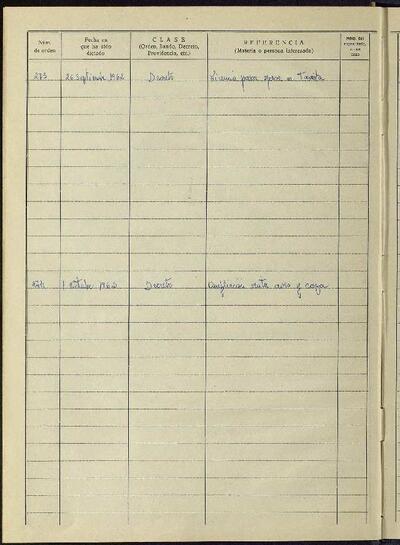 Núm. de orden
Fecha en que ha sido dictado
CLASE (Orden, Bando, Decreto, Providencia, etc.)
REFERENCIA (Materia o persona interesada)
273 26 Septiembre 1962 Decreto Licencia para obras
274 1 Octubre 1962 Decreto y caza